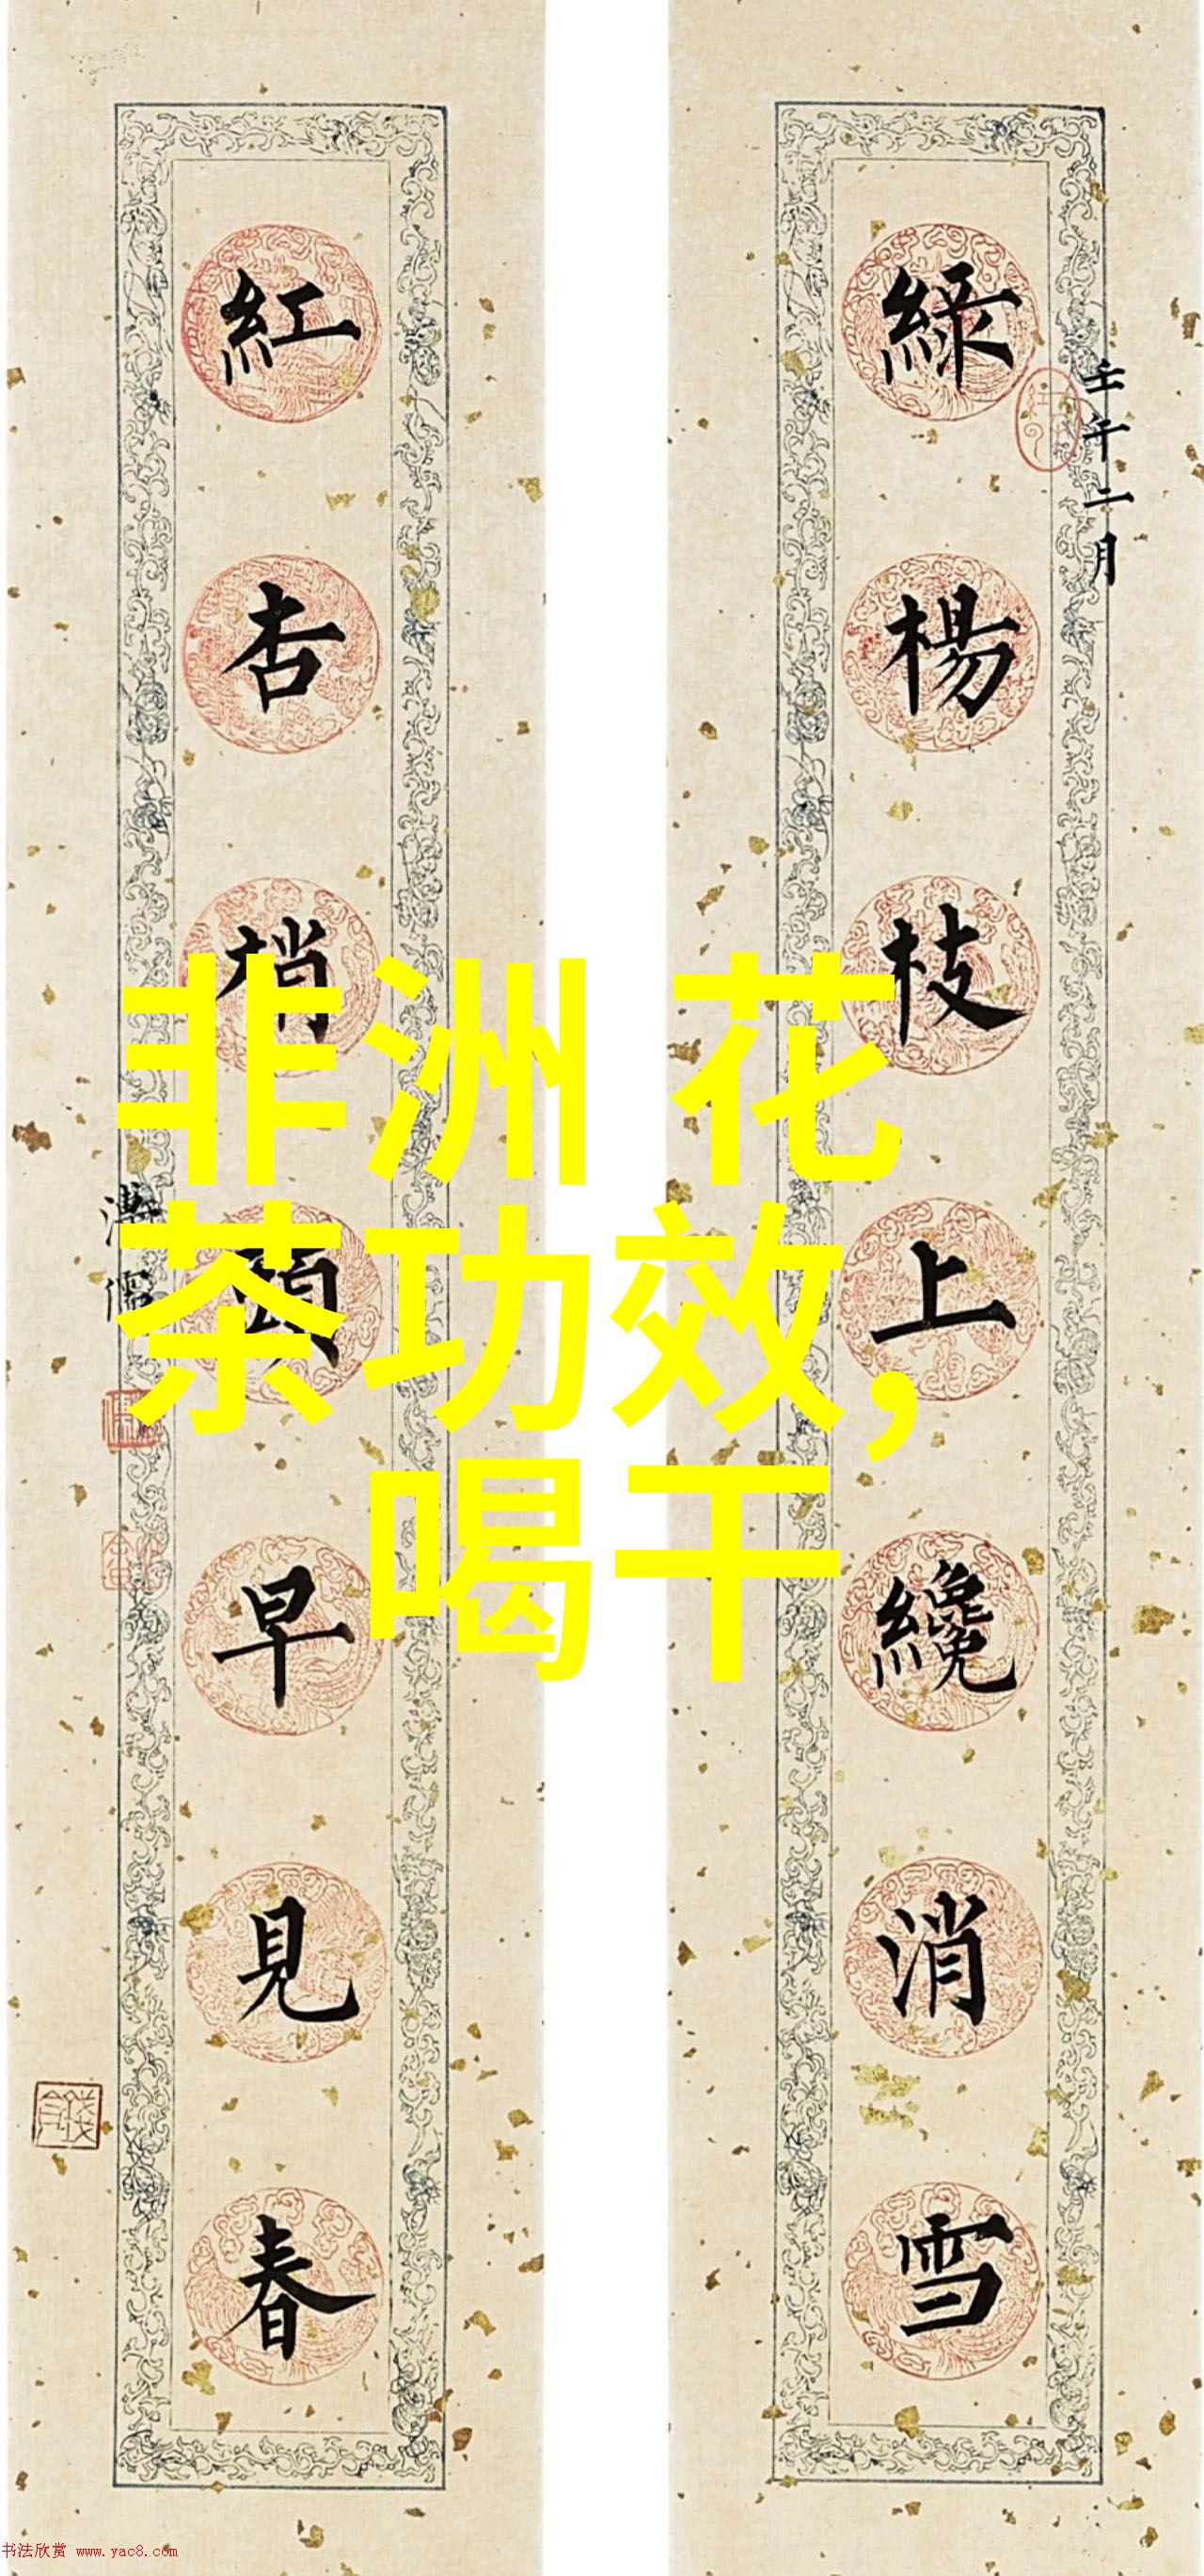 綠楊枝上纔消雪
壬午二月
紅杏梢頭早見春
溥儒
非洲 花
茶功效,
喝干
书法欣赏 www.yac8.com